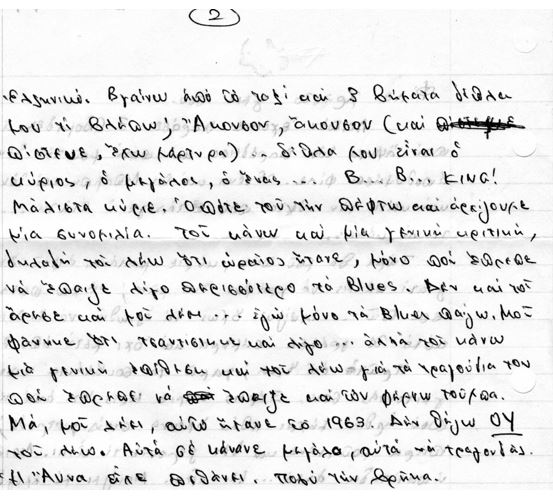 2
Ελληνικό. Βγαίνω ἀπό τό ταξί και 3 βήματα δίπλα
μου τί βλέπω! Ἄκουσον, ἄκουσον (καί
πίστεψε, ἔχω μάρτυρα).. δίπλα μου εἶναι ὁ
κύριος, ὁ μεγάλος, ὁ ἕνας ... B.. B.. KING!
Μάλιστα κύριε. Ὁπότε τοῦ τήν πέφτω και ἀρχίζουμε
μία συνομιλία. Τοῦ κάνω και μία γενική κριτική,
δηλαδή τοῦ λέω ὅτι ὡραῖος ἤτανε, μόνο πού ἔπρεπε
νά ἔπαιζε λίγο περισσότερο τά Blues. Δέν και τοῦ
ἄρεσε και μοῦ λέει ... ἐγώ μόνο τά Blues παίζω. Μοῦ
φάνηκε ὅτι τσαντίστηκε και λίγο ... ἀλλά τοῦ κάνω
μιά γενική ἐπίθεση και τοῦ λέω γιά τά τραγούδια του
πού ἔπρεπε νά ἔπαιζε και τόν φέρνω τούμπα.
Μά, μοῦ λέει, αὐτό ἤτανε το 1963. Δέν θέλω ΟΥ
τοῦ λέω. Αὐτά σέ κάνανε μεγάλο, αὐτά νά τραγουδᾶς.
Η Ἄννα εἶχε πεθάνει.. πολύ τήν βρῆκα.